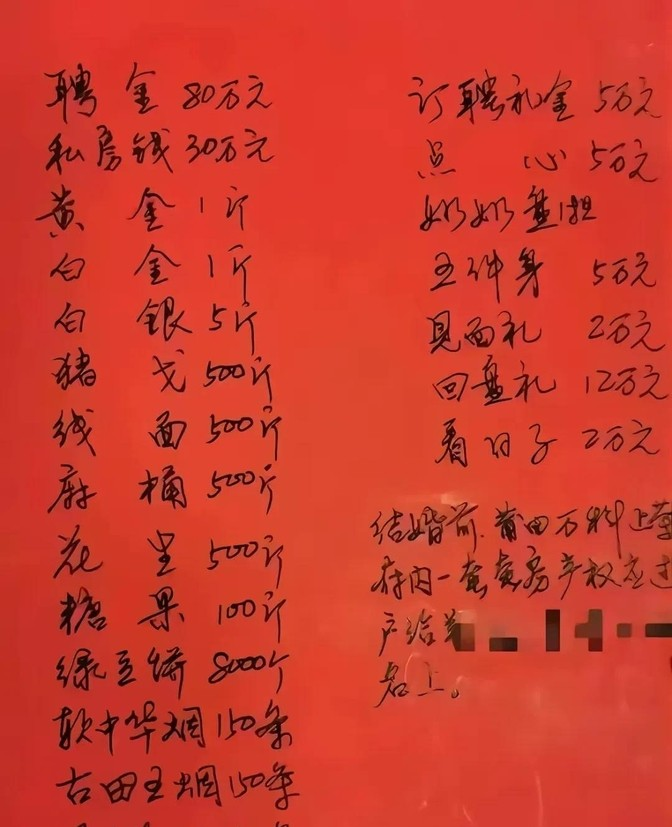 聘金 80万元
私房钱 30万元
黄金 1斤
白金 1斤
白银 5斤
猪 500斤
线面 500斤
麻桶 500斤
花生 500斤
糖果 100斤
绿豆饼 8000个
软中华烟 150条
古田王烟 150条
订聘礼金 5万元
点心 5万元
奶奶盘担
五件身 5万元
见面礼 2万元
回盘礼 12万元
看日子 2万元
结婚前,莆田万科上
存内一套房产权应过
户给
名上。